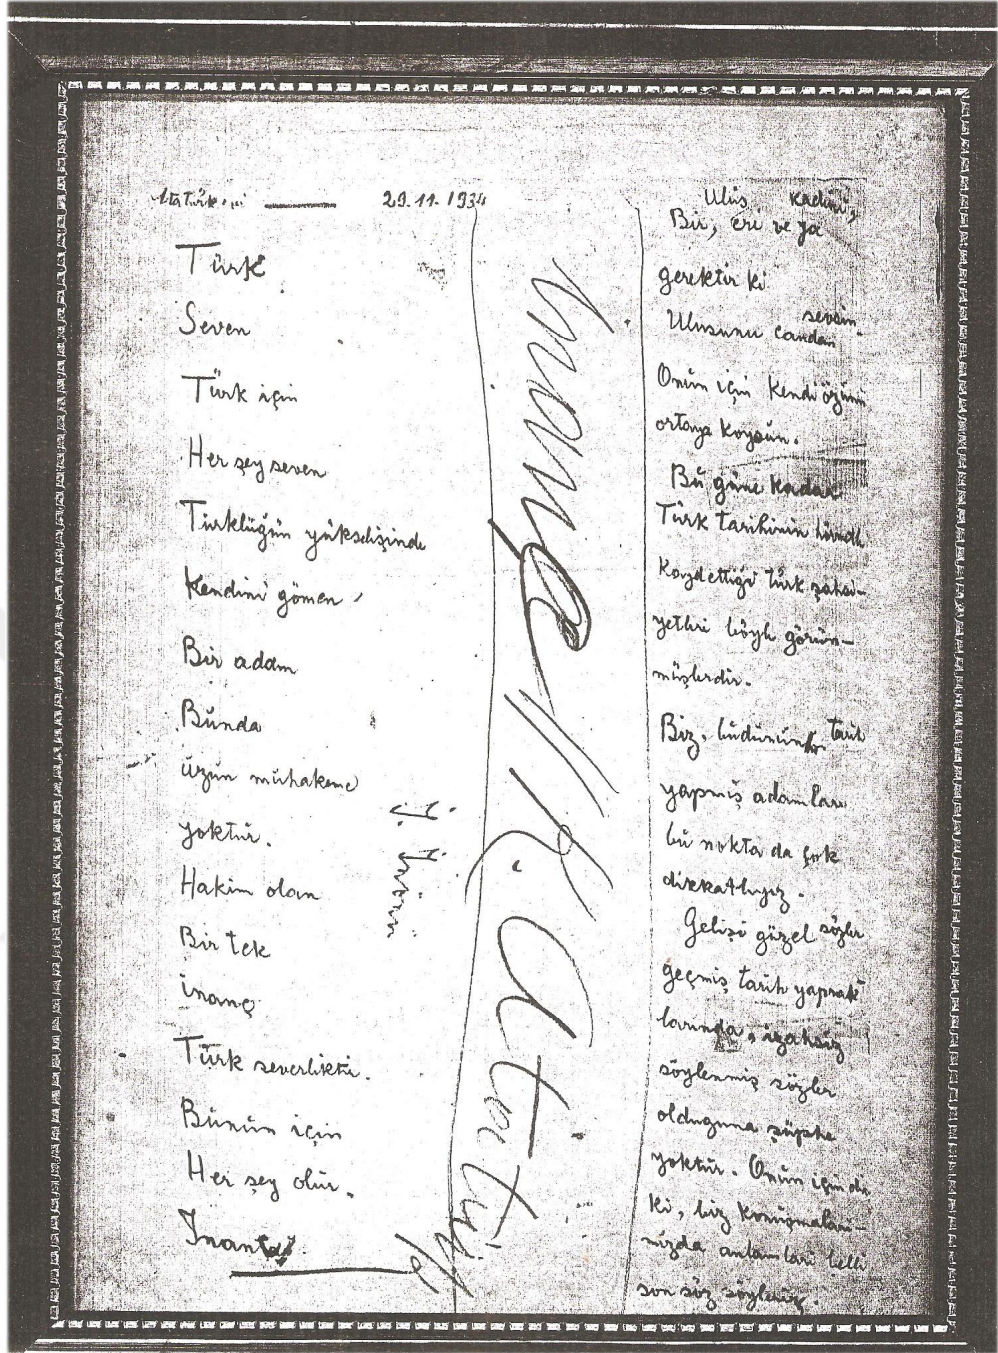 29.11.1934
Türk
Seven
Türk için
Her şey seven
Türklüğün yükselişinde
Kendini gömen,
Bir adam
Bunda
uzun muhakeme
yoktur.
Hakim olan
Bir tek
inanç
Türk severliktir.
Bunun için
Her şey olur.
İ. İnönü
K. Atatürk
Ulus kadını,
Bir, eri ve ya
gerektir ki
Ulusunu candan sevsin.
Onun için kendi özünü
ortaya koysun.
Bu güne kadar
Türk tarihinin
kaydettiği türk şahsi-
yetleri böyle görün-
müşlerdir.
Biz, budunun tarih
yapmış adamları
bu nokta da çok
dikkatlıyız.
Gelişi güzel sözler
geçmiş tarih yaprak
larında, izahsız
söylenmiş sözler
olduguna şüphe
yoktur. Onun için dir
ki, biz konuşmaları-
mızda anlamları belli
son söz söyleriz.